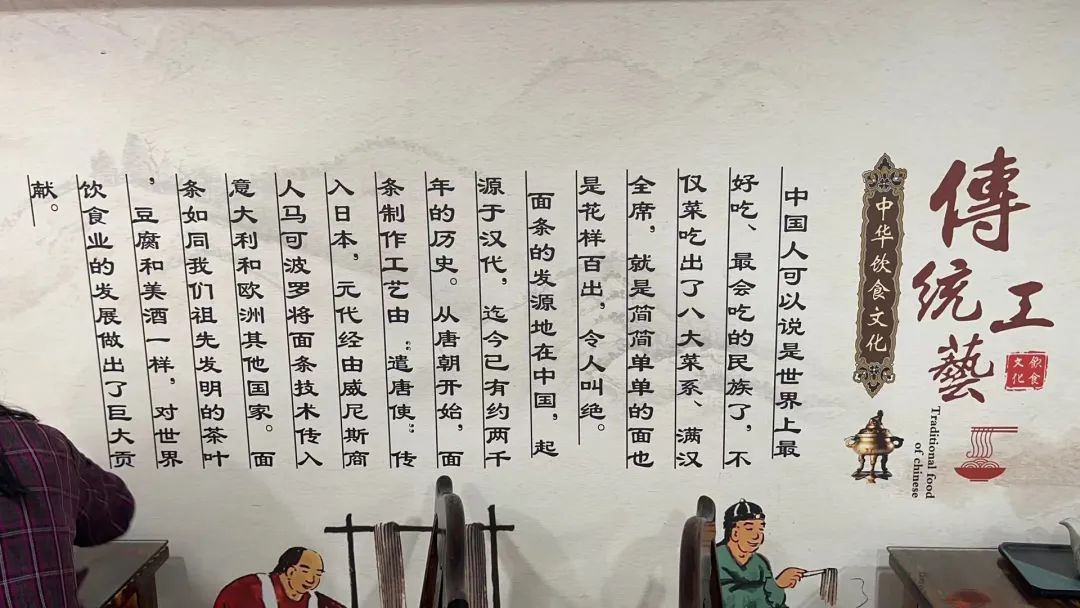 傳統工藝
中华饮食文化
饮食文化
Traditional food
of chinese
中国人可以说是世界上最
好吃、最会吃的民族了，不
仅菜吃出了八大菜系、满汉
全席，就是简简单单的面也
是花样百出，令人叫绝。
面条的发源地在中国，起
源于汉代，迄今已有约两千
年的历史。从唐朝开始，面
条制作工艺由“遣唐使”传
入日本，元代经由威尼斯商
人马可波罗将面条技术传入
意大利和欧洲其他国家。面
条如同我们祖先发明的茶叶
，豆腐和美酒一样，对世界
饮食业的发展做出了巨大贡
献。